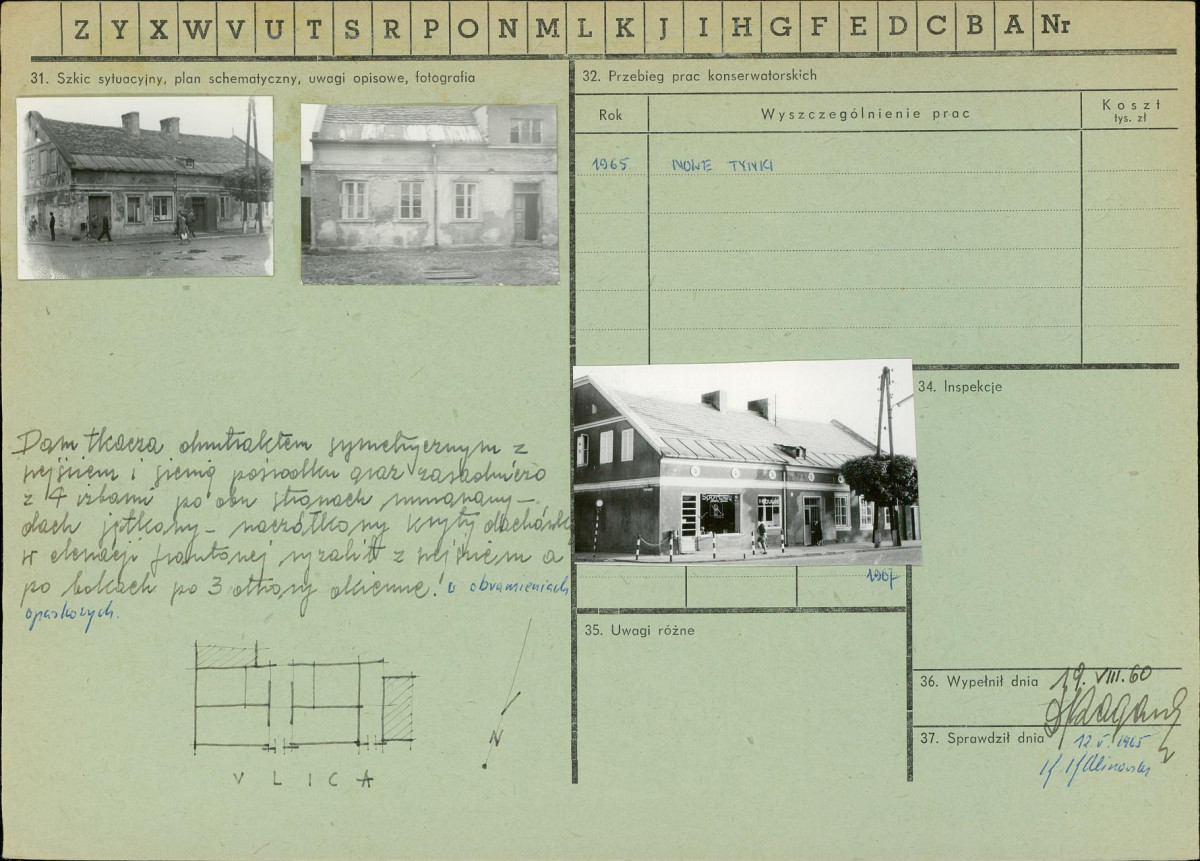 Z Y X W V U T S R P O N M L K J I H G F E D C B A Nr
31. Szkic sytuacyjny, plan schematyczny, uwagi opisowe, fotografia
Dom tkacza dwutraktem symetrycznym z
wejściem i sienią pośrodku oraz zasadniczo
z 4 izbami po obu stronach
dach naczółkowy kryty
w elewacji frontowej ryzalit z wejściem a
po bokach po 3 otwory okienne! w obramieniach
opaskowych.
N
ULICA
32. Przebieg prac konserwatorskich
Rok Wyszczególnienie prac Koszt
tys. zł
1965 NOWE TYNKI
1967
34. Inspekcje
35. Uwagi różne
36. Wypełnił dnia 19. VIII. 60
37. Sprawdził dnia 12 V. 1965